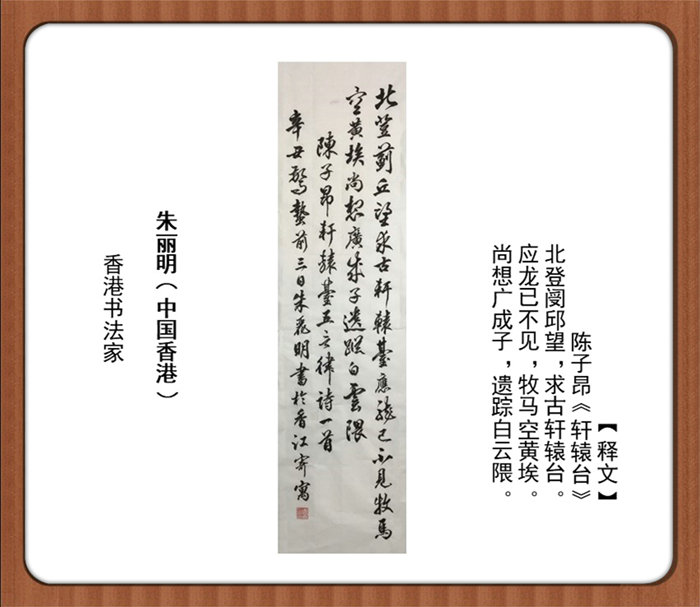 【释文】
陈子昂《轩辕台》
北登阌邱望，求古轩辕台。
应龙已不见，牧马空黄埃。
尚想广成子，遗踪白云隈。
北登薊丘望求古軒轅臺應龍已不見牧馬
空黃埃尚想廣成子遺蹤白雲隈
陳子昂軒轅臺五言律詩一首
辛丑驚蟄前三日朱麗明書於香江寄寓
朱丽明（中国香港）
香港书法家